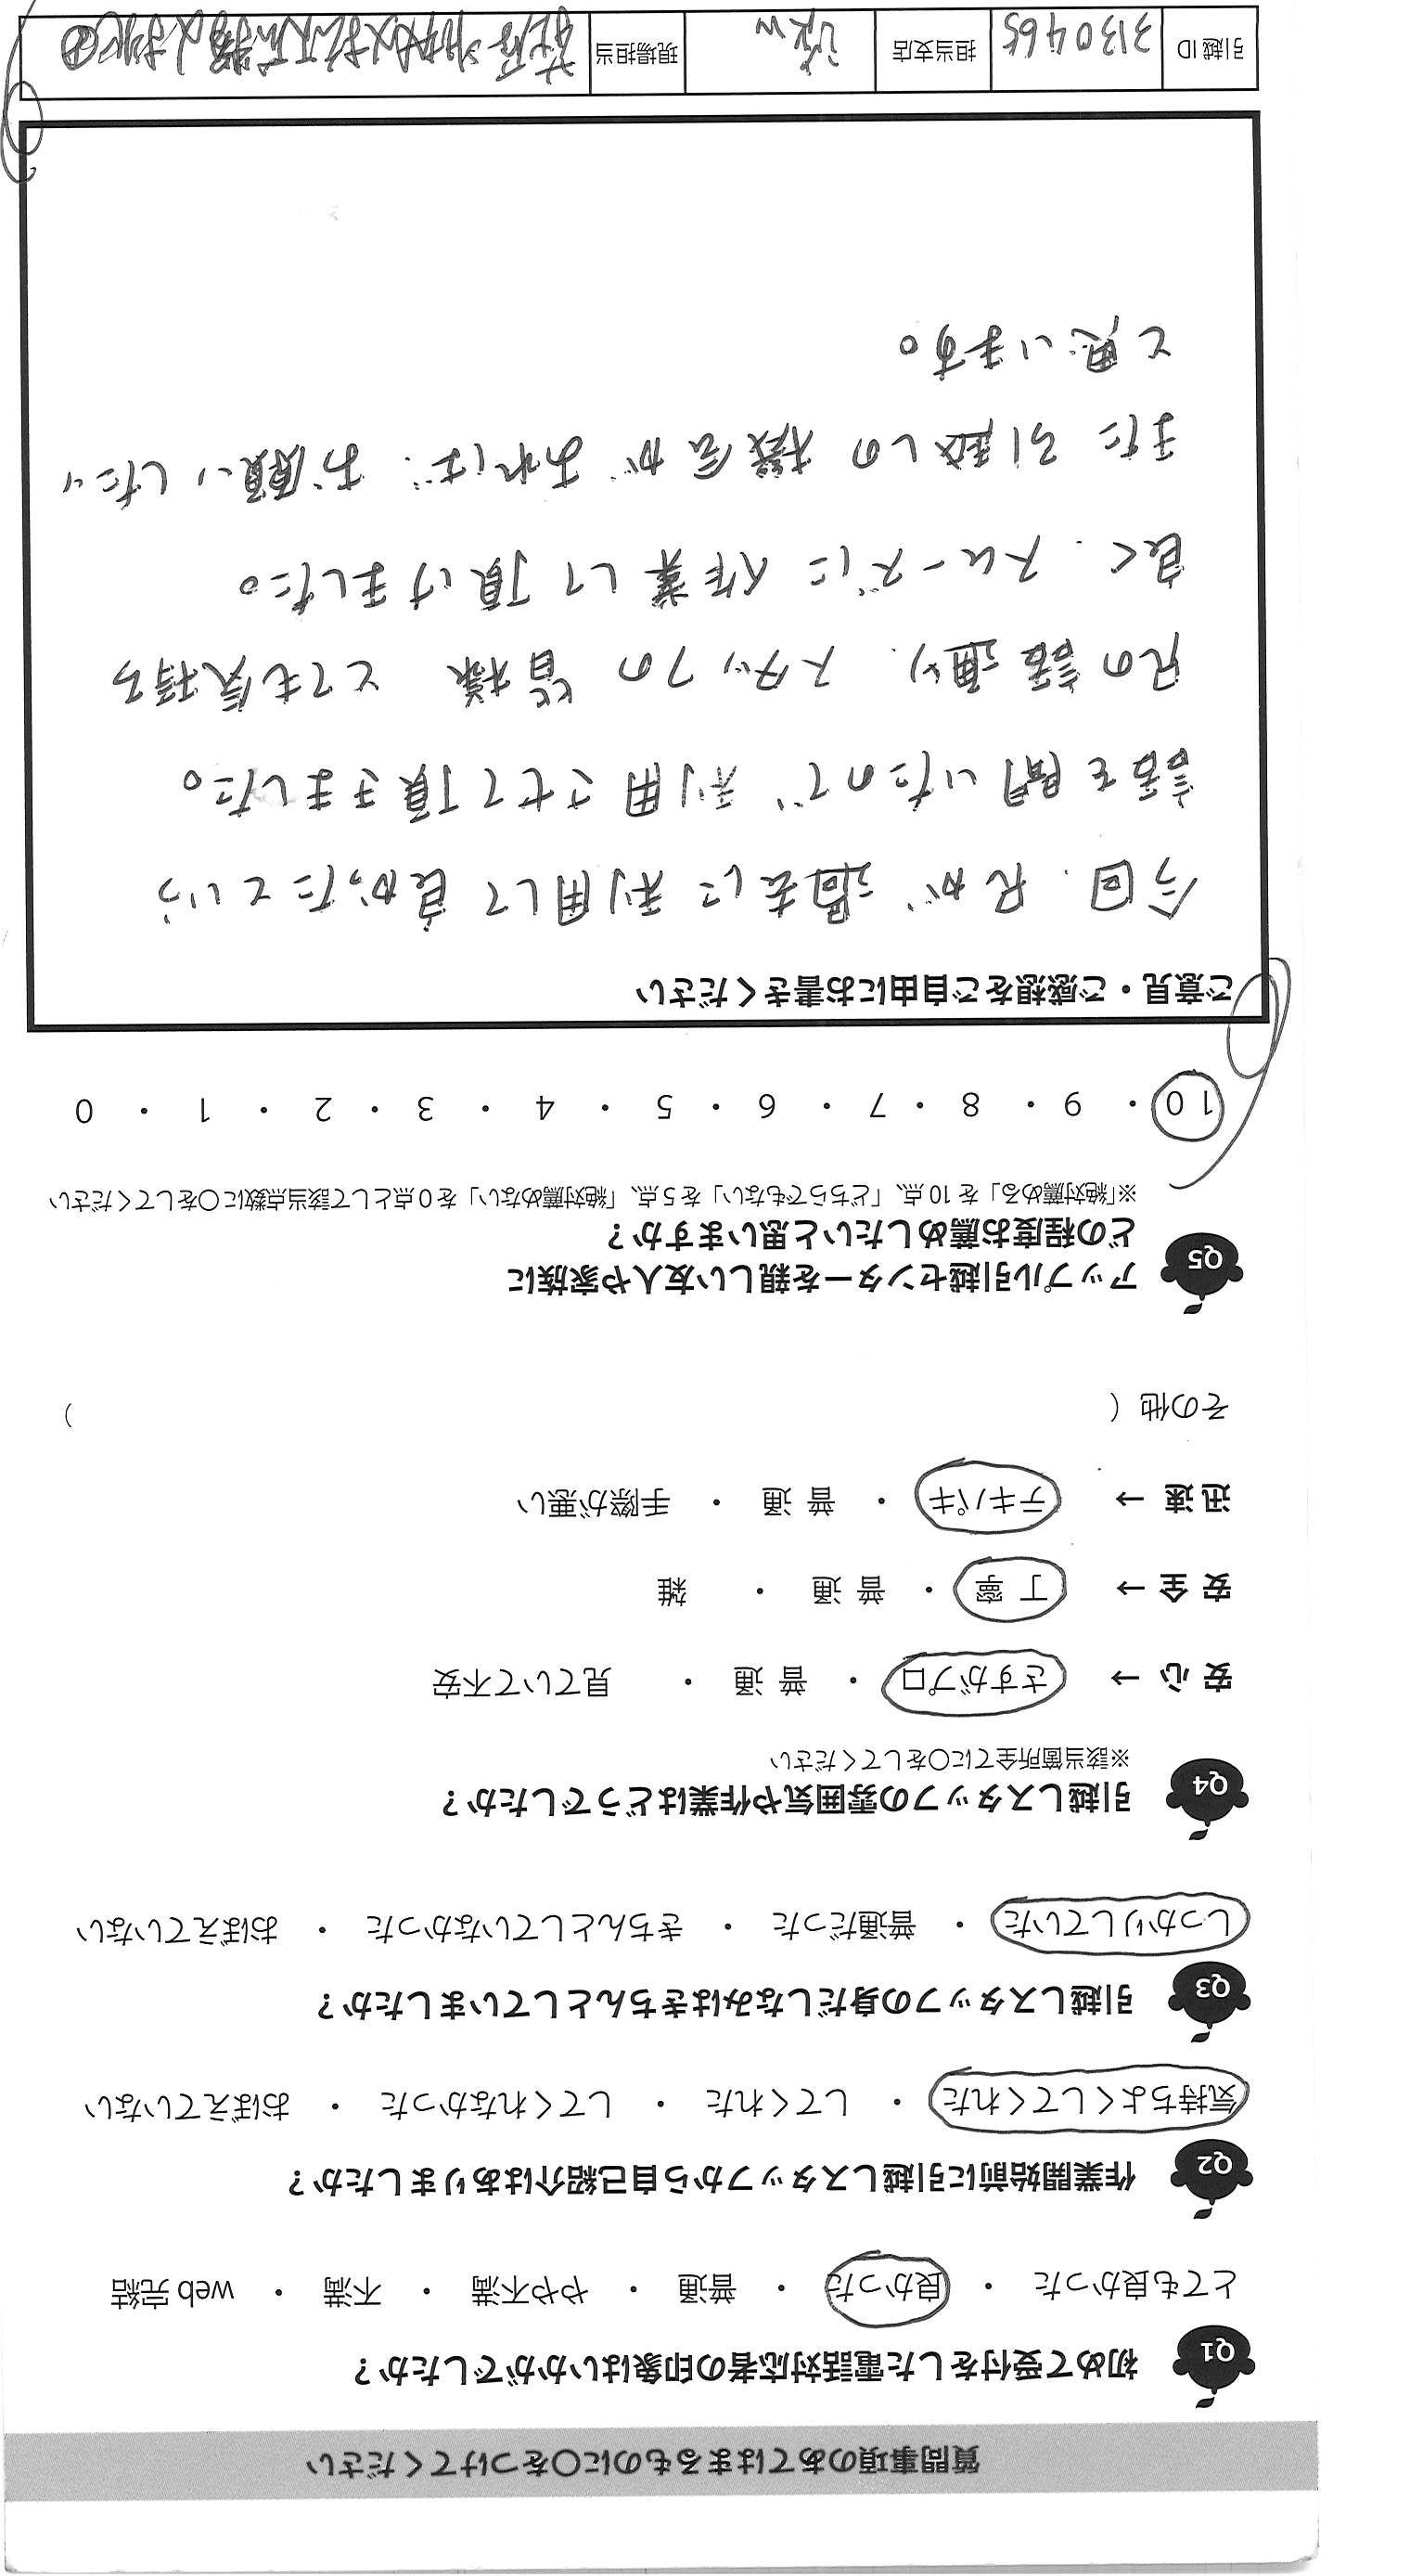 質問事項のあてはまるものに○をつけてください
Q1 初めて受付をした電話対応者の印象はいかがでしたか？
とても良かった ・ 良かった ・ 普通 ・ やや不満 ・ 不満 ・ web 完結
Q2 作業開始前に引越しスタッフから自己紹介はありましたか？
気持ちよくしてくれた ・ してくれた ・ してくれなかった ・ おぼえていない
Q3 引越しスタッフの身だしなみはきちんとしていましたか？
しっかりしていた ・ 普通だった ・ きちんとしていなかった ・ おぼえていない
Q4 引越しスタッフの雰囲気や作業はどうでしたか？
※該当箇所全てに○をしてください
安心 → さすがプロ ・ 普通 ・ 見ていて不安
安全 → 丁寧 ・ 普通 ・ 雑
迅速 → テキパキ ・ 普通 ・ 手際が悪い
その他（ ）
Q5 アップル引越センターを親しい友人や家族に
どの程度お薦めしたいと思いますか？
※「絶対薦める」を10点、「どちらでもない」を5点、「絶対薦めない」を0点として該当点数に○をしてください
10 ・ 9 ・ 8 ・ 7 ・ 6 ・ 5 ・ 4 ・ 3 ・ 2 ・ 1 ・ 0
ご意見・ご感想をご自由にお書きください
今回、兄が過去に利用して良かったという
話を聞いたので利用させて頂きました。
兄の話通り、スタッフの皆様とても気持ち
良く、スムーズに作業して頂けました。
また引越しの機会があれば、お願いしたい
と思います。
引越ID 3130465 担当支店 現場担当